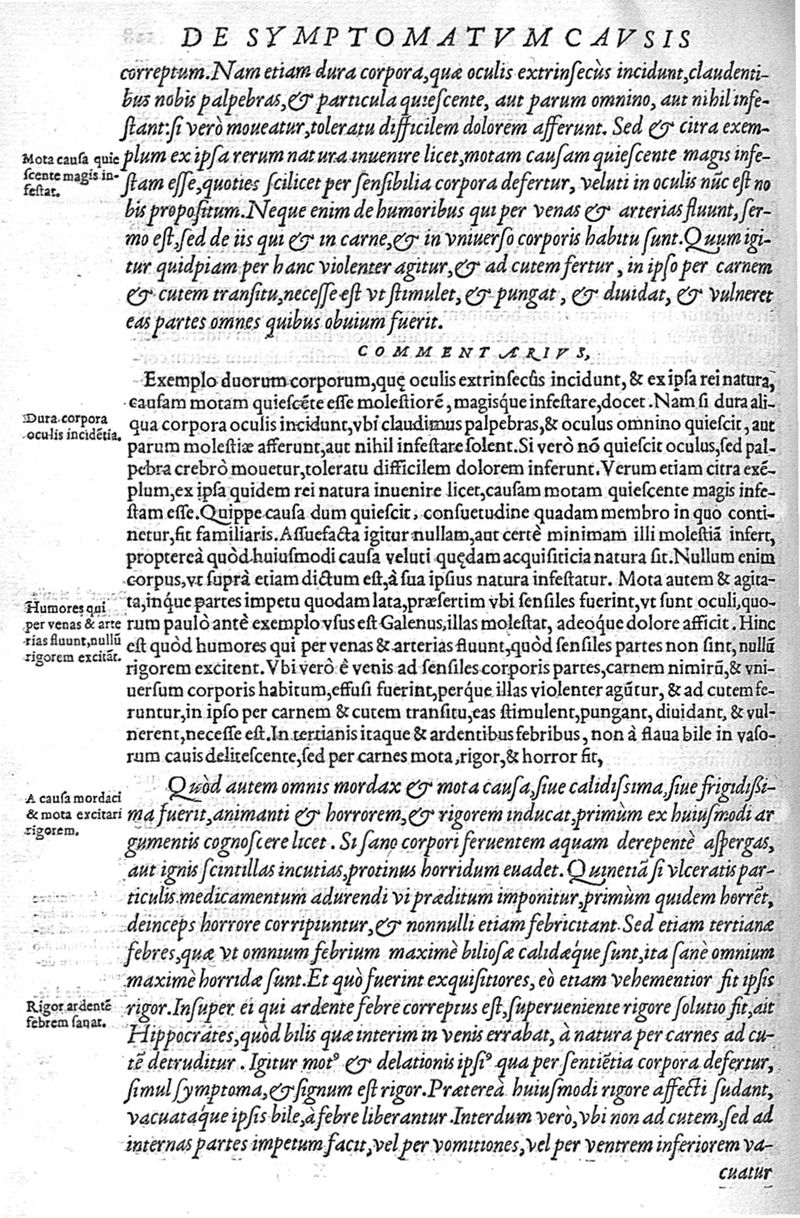 DE SYMPTOMATVM CAVSIS
correptum. Nam etiam dura corpora, quæ oculis extrinſecùs incidunt, claudenti-
bus nobis palpebras, & particula quieſcente, aut parum omnino, aut nihil infe-
ſtant: ſi verò moueatur, toleratu difficilem dolorem afferunt. Sed & citra exem-
Mota cauſa quie
ſcente magis in-
feſtat.
plum ex ipſa rerum natura inuenire licet, motam cauſam quieſcente magis infe-
ſtam eſſe, quoties ſcilicet per ſenſibilia corpora defertur, veluti in oculis nũc eſt no
bis propoſitum. Neque enim de humoribus qui per venas & arterias fluunt, ſer-
mo eſt, ſed de iis qui & in carne, & in vniuerſo corporis habitu ſunt. Quum igi-
tur quidpiam per hanc violenter agitur, & ad cutem fertur, in ipſo per carnem
& cutem tranſitu, neceſſe eſt vt ſtimulet, & pungat, & diuidat, & vulneret
eas partes omnes quibus obuium fuerit.
COMMENTARIVS,
Exemplo duorum corporum, quę oculis extrinſecũs incidunt, & ex ipſa rei natura,
cauſam motam quieſcẽte eſſe moleſtiorẽ, magisque infeſtare, docet. Nam ſi dura ali-
Dura corpora
oculis incidẽtia.
qua corpora oculis incidunt, vbi claudimus palpebras, & oculus omnino quieſcit, aut
parum moleſtiæ afferunt, aut nihil infeſtare ſolent. Si verò nõ quieſcit oculus, ſed pal-
pebra crebrò mouetur, toleratu difficilem dolorem inferunt. Verum etiam citra exẽ-
plum, ex ipſa quidem rei natura inuenire licet, cauſam motam quieſcente magis infe-
ſtam eſſe. Quippe cauſa dum quieſcit, conſuetudine quadam membro in quo conti-
netur, fit familiaris. Aſſuefacta igitur nullam, aut certè minimam illi moleſtiã infert,
proptereà quòd huiuſmodi cauſa veluti quędam acquiſiticia natura ſit. Nullum enim
corpus, vt ſuprà etiam dictum eſt, à ſua ipſius natura infeſtatur. Mota autem & agita-
Humores qui
per venas & arte
rias fluunt, nullũ
rigorem excitãt.
ta, inq́ue partes impetu quodam lata, præſertim vbi ſenſiles fuerint, vt ſunt oculi, quo-
rum paulò antè exemplo vſus eſt Galenus, illas moleſtat, adeoque dolore afficit. Hinc
eſt quòd humores qui per venas & arterias fluunt, quòd ſenſiles partes non ſint, nullũ
rigorem excitent. Vbi verò è venis ad ſenſiles corporis partes, carnem nimirũ, & vni-
uerſum corporis habitum, effuſi fuerint, perq́ue illas violenter agũtur, & ad cutem fe-
runtur, in ipſo per carnem & cutem tranſitu, eas ſtimulent, pungant, diuidant, & vul-
nerent, neceſſe eſt. In tertianis itaque & ardentibus febribus, non à flaua bile in vaſo-
rum cauis deliteſcente, ſed per carnes mota, rigor, & horror fit,
A cauſa mordaci
& mota excitari
rigorem.
Quòd autem omnis mordax & mota cauſa, ſiue calidiſsima, ſiue frigidiſsi-
ma fuerit, animanti & horrorem, & rigorem inducat, primùm ex huiuſmodi ar
gumentis cognoſcere licet. Si ſano corpori feruentem aquam derepentè aſpergas,
aut ignis ſcintillas incutias, protinus horridum euadet. Quinetiã ſi vlceratis par-
ticulis medicamentum adurendi vi præditum imponitur, primùm quidem horrẽt,
deinceps horrore corripiuntur, & nonnulli etiam febricitant. Sed etiam tertianæ
febres, quæ vt omnium febrium maximè bilioſæ calidæque ſunt, ita ſanè omnium
maximè horridæ ſunt. Et quò fuerint exquiſitiores, eò etiam vehementior fit ipſis
Rigor ardentẽ
febrem ſanat.
rigor. Inſuper ei qui ardente febre correptus eſt, ſuperueniente rigore ſolutio fit, ait
Hippocrates, quòd bilis quæ interim in venis errabat, à natura per carnes ad cu-
tẽ detruditur. Igitur mot⁹ & delationis ipſi⁹ qua per ſentiẽtia corpora defertur,
ſimul ſymptoma, & ſignum eſt rigor. Præterea huiuſmodi rigore affecti ſudant,
vacuataq́ue ipſis bile, à febre liberantur. Interdum verò, vbi non ad cutem, ſed ad
internas partes impetum facit, vel per vomitiones, vel per ventrem inferiorem va-
cuatur